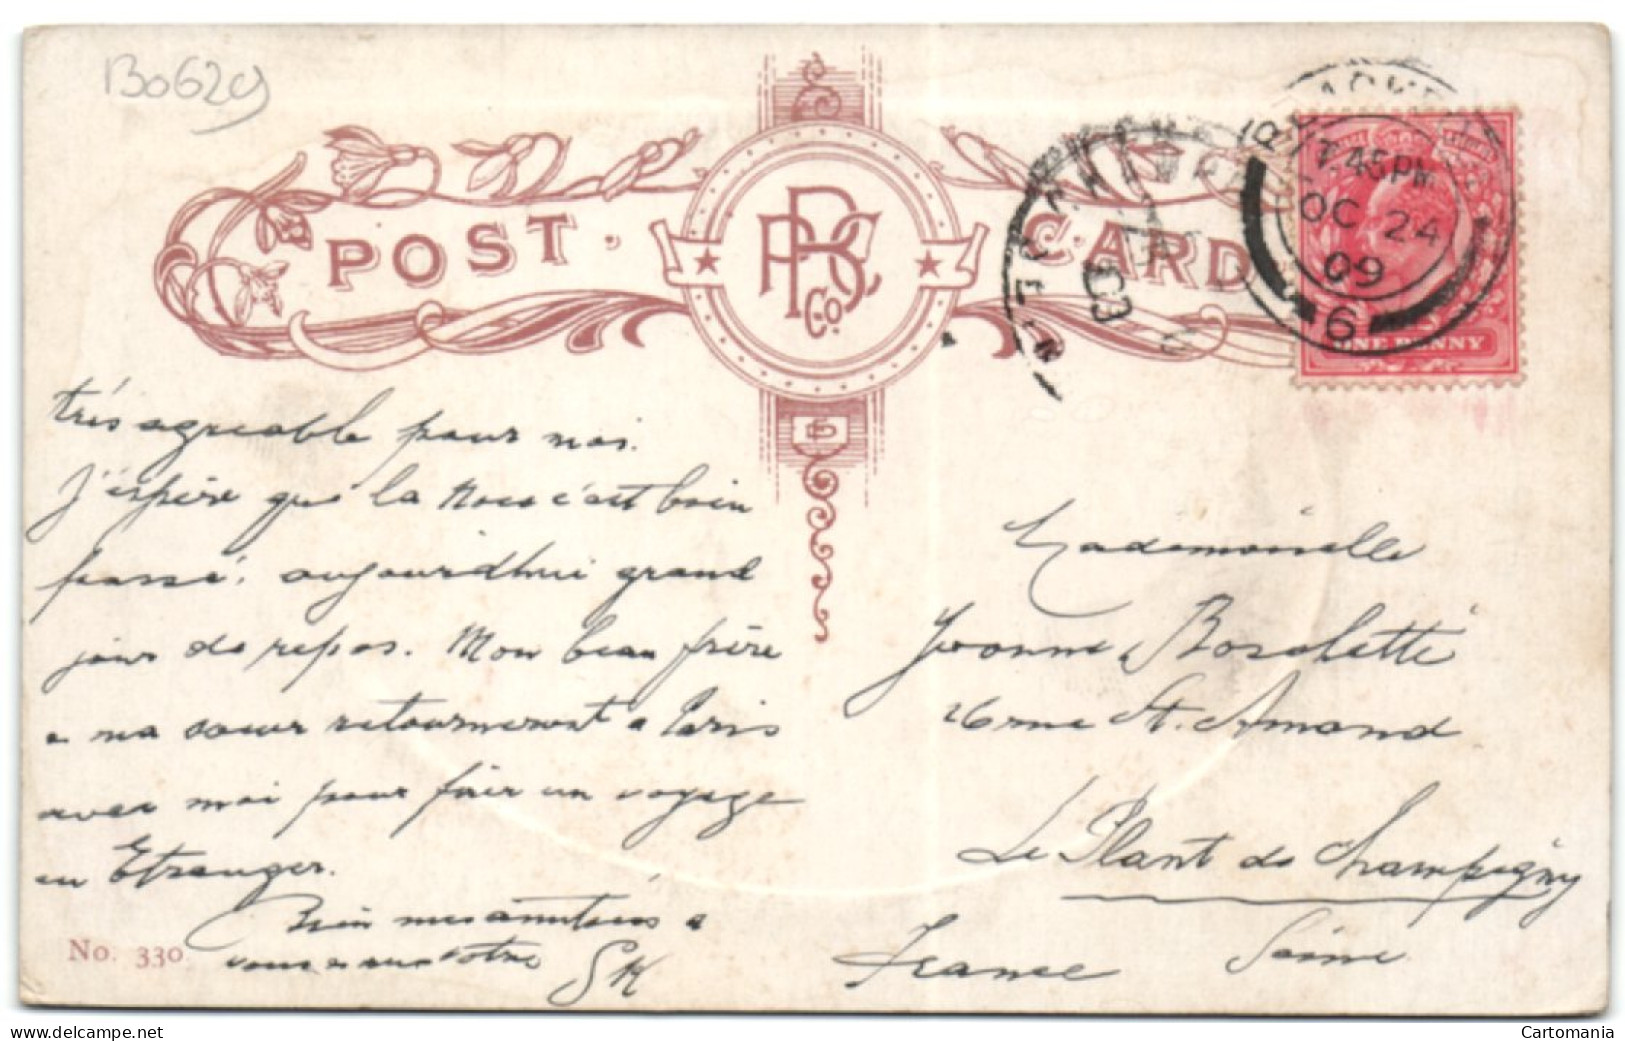 B0629
POST CARD
PBS Co.
7.45 PM
OC 24
09
6
ONE PENNY
très agreable pour moi.
J'espère que la Noce c'est bien
passé, aujourdhui grand
jour de repos. Mon beau frère
e ma soeur retourneront a Paris
avec moi pour fair un voyage
en Etranger.
Bien mes amitiés a
vous e
No. 330
SK
Mademoiselle
Yvonne Boschetti
26 rue St. Amand
Le Plant de Champigny
Seine
France
Cartomania